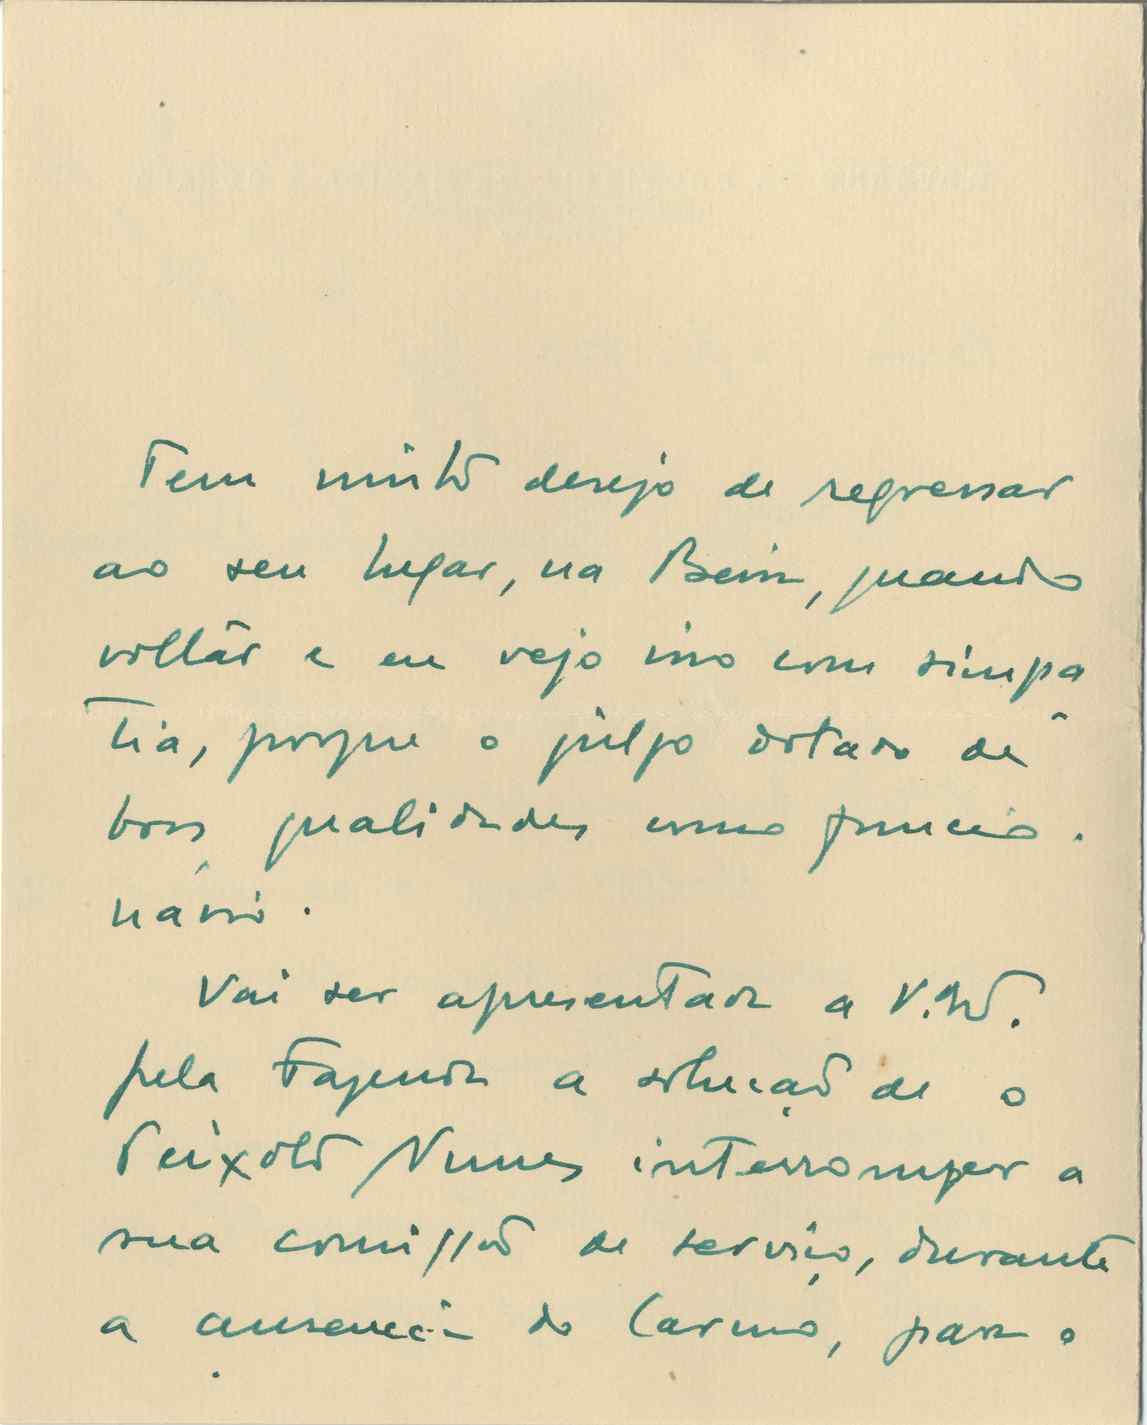 Tem muito desejo de regressar
ao seu lugar, na Beira, quando
voltar e eu vejo isso com simpa
tia, porque o julgo dotado de
boas qualidades como funcio-
nário.
Vai ser apresentada a V.
pela Fazenda a solução de o
Peixoto Nunes interromper a
sua comissão de serviço, durante
a ausencia do Carmo, para o